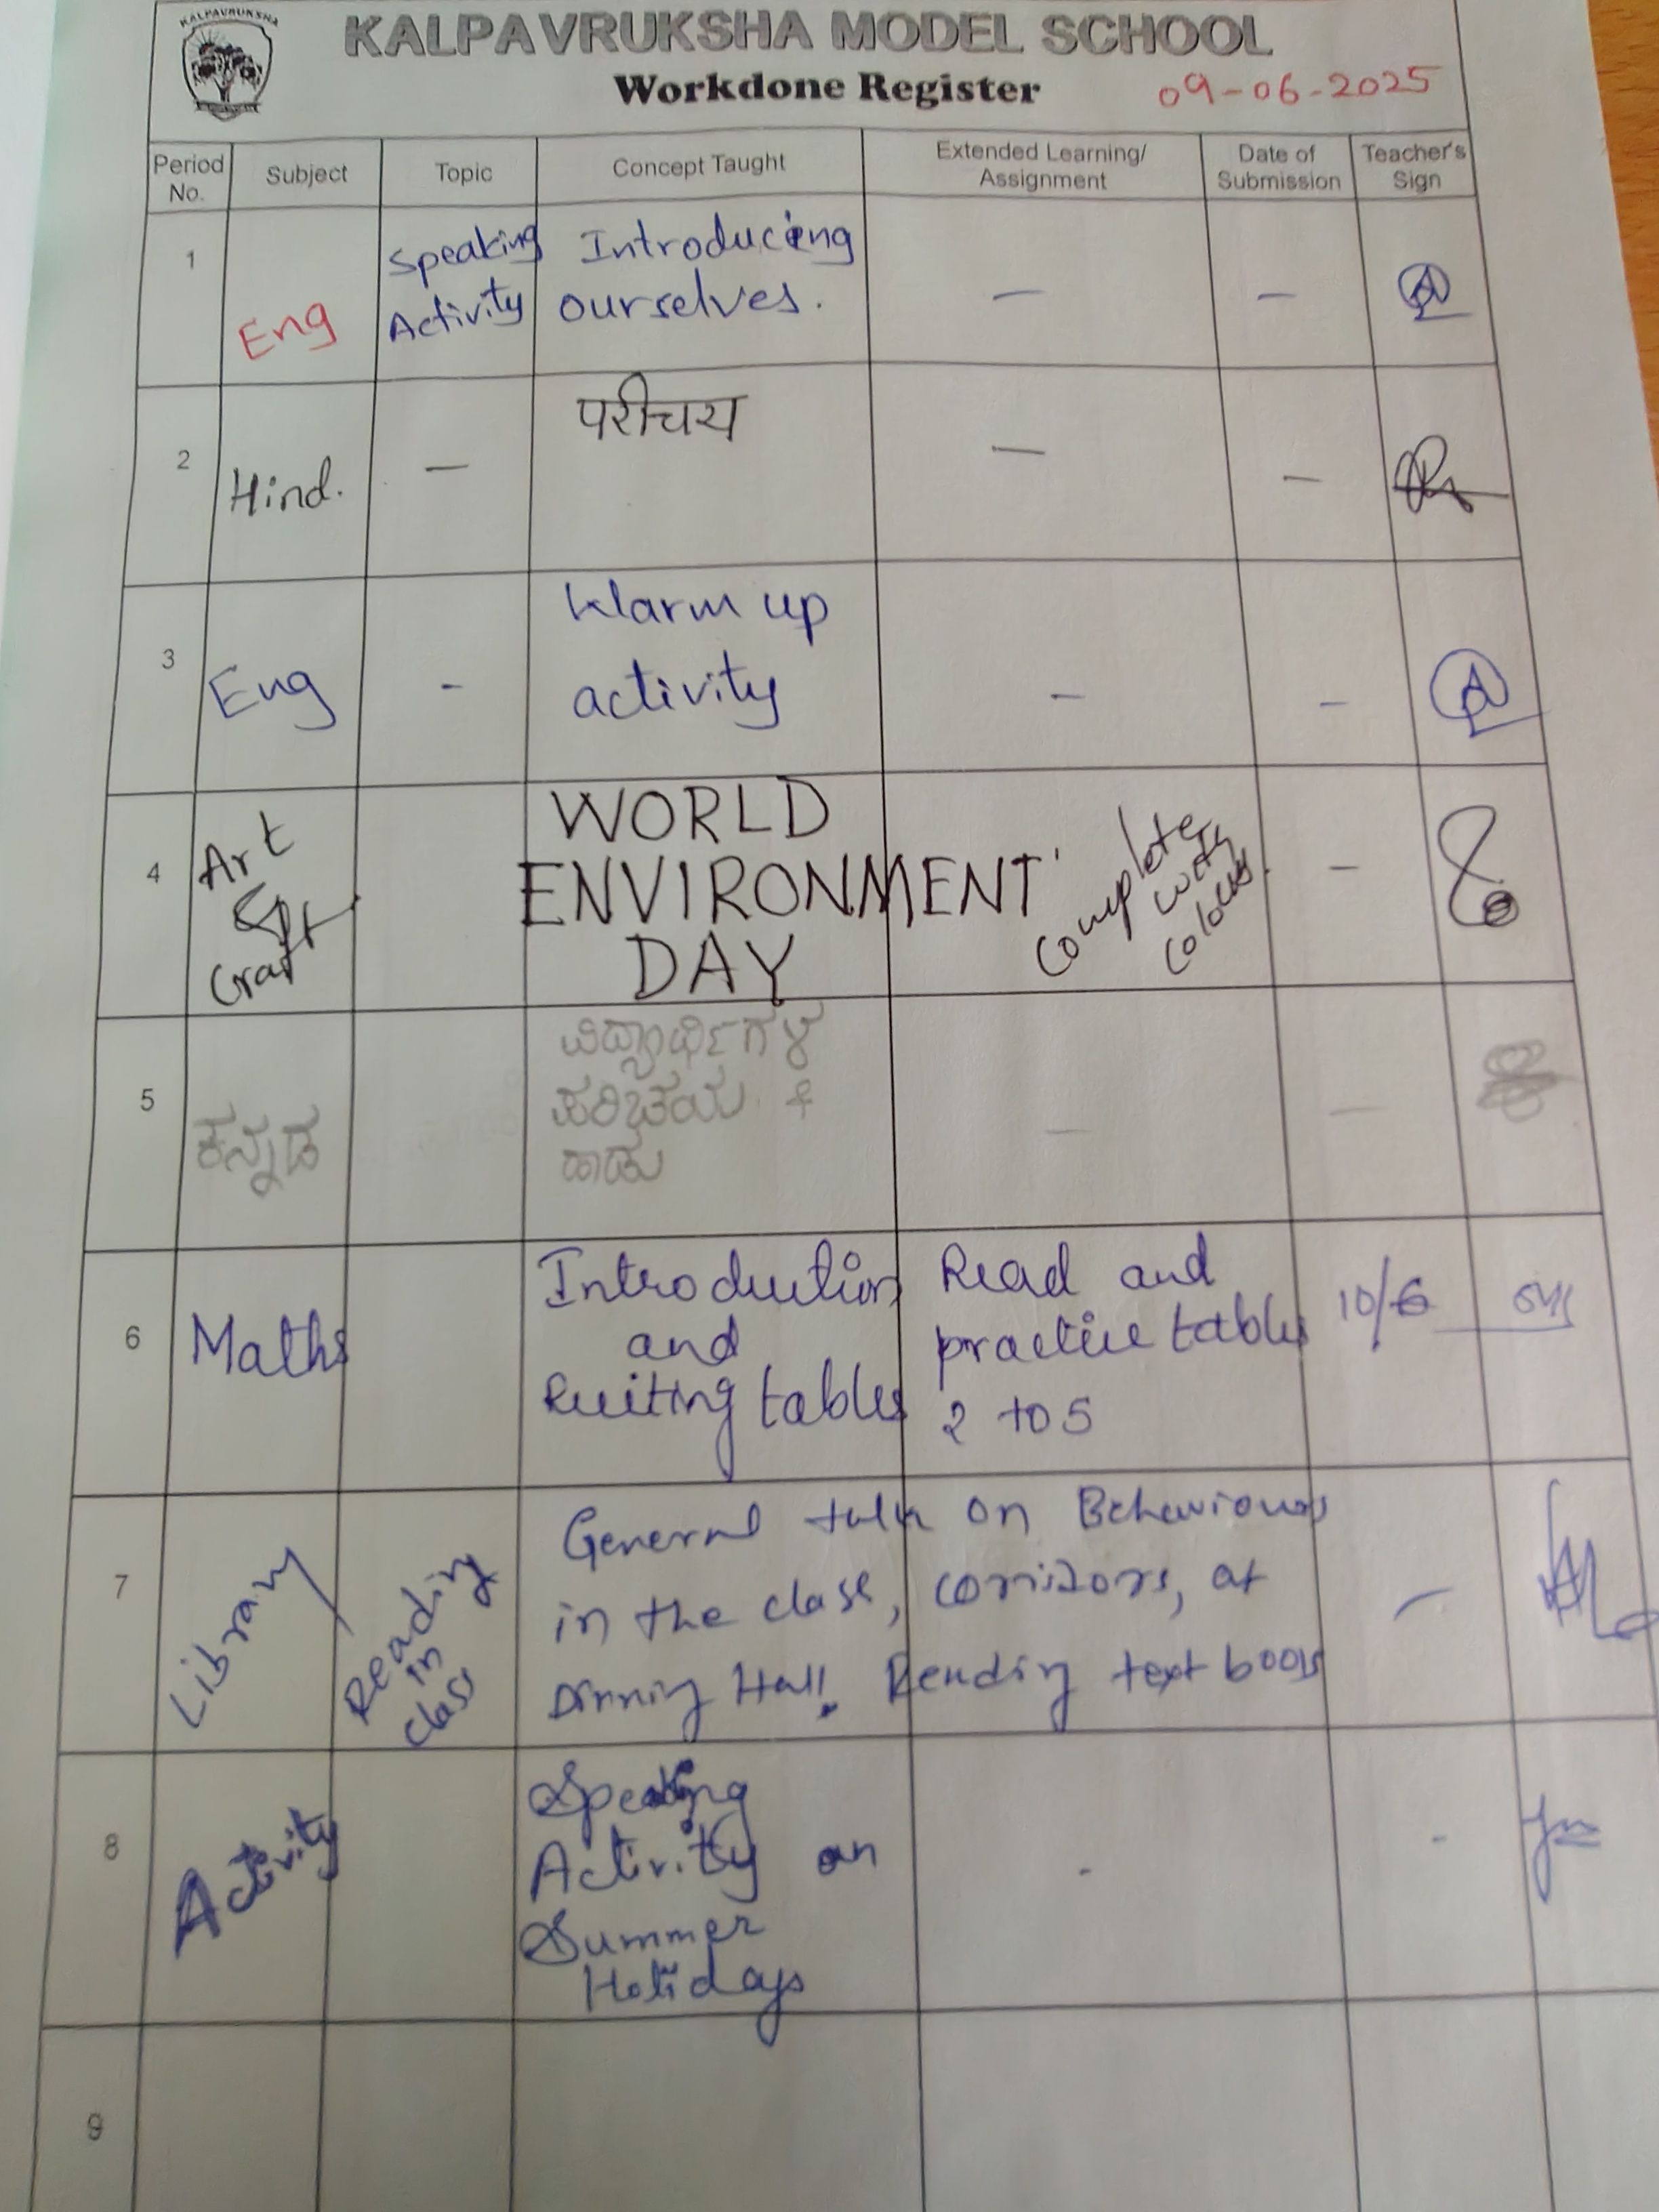 KALPAVRUKSHA
KALPAVRUKSHA MODEL SCHOOL
Workdone Register 09-06-2025
Period No. Subject Topic Concept Taught Extended Learning/ Assignment Date of Submission Teacher's Sign
1 Eng Speaking Activity Introducing ourselves. — —
2 Hind. — परीचय — —
3 Eng - Warm up activity — —
4 Art & Craft WORLD ENVIRONMENT DAY Complete with colours. —
5 ಕನ್ನಡ ವಿದ್ಯಾರ್ಥಿಗಳ ಪರಿಚಯ + ಹಾಡು — —
6 Maths Introduction and Reciting tables Read and practice tables 2 to 5 10/6
7 Library Reading in class General talk on Behaviours in the class, corridors, at Dinning Hall. Reading text books —
8 Activity Speaking Activity on Summer Holidays - -
9